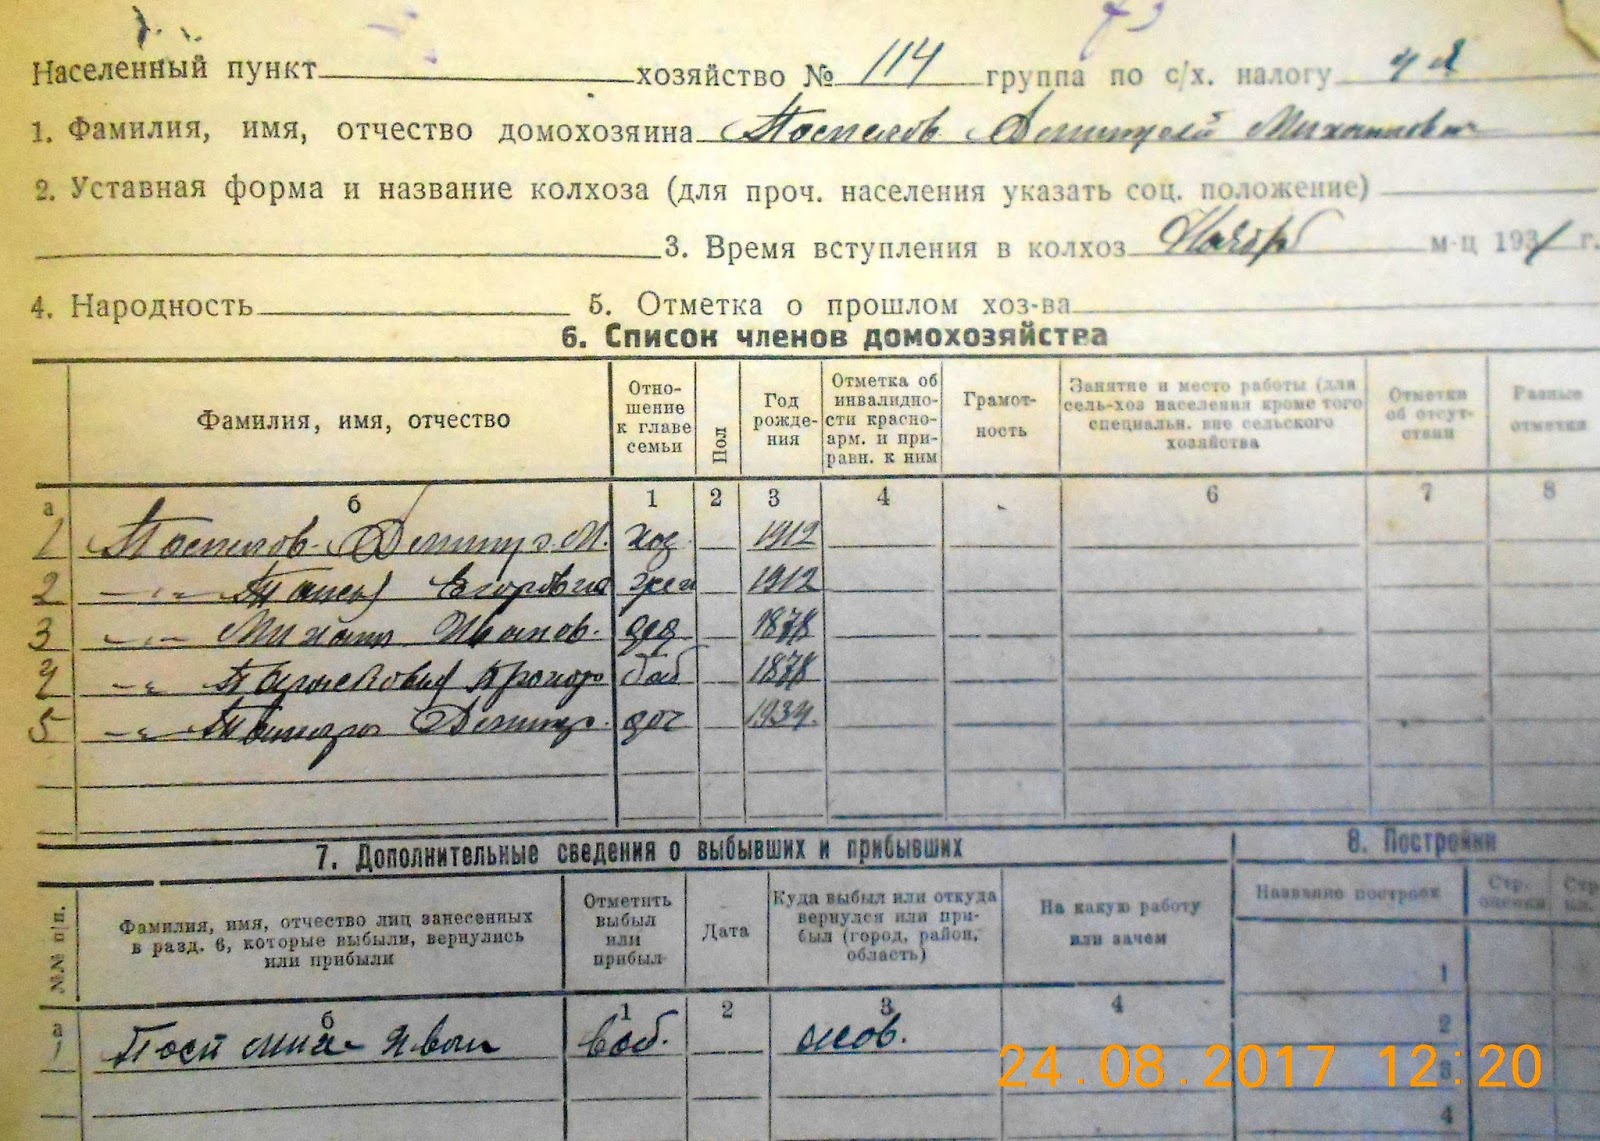 Населенный пункт хозяйство № 114 группа по с/х. налогу
1. Фамилия, имя, отчество домохозяина Поспелов Дмитрий Михайлович
2. Уставная форма и название колхоза (для проч. населения указать соц. положение)
3. Время вступления в колхоз Ноябрь м-ц 1931 г.
4. Народность 5. Отметка о прошлом хоз-ва
6. Список членов домохозяйства
Фамилия, имя, отчество
Отно-
шение
к главе
семьи
Пол
Год
рожде-
ния
Отметка об
инвалидно-
сти красно-
арм. и при-
равн. к ним
Грамот-
ность
Занятие и место работы (для
сель-хоз населения кроме того
специальн. вне сельского
хозяйства
Отметки
об отсут-
ствии
Разные
отметки
а б 1 2 3 4 6 7 8
1 Поспелов Дмитр. М. хоз 1912
2 -"- Егоровна жен 1912
3 -"- Михаил Иванов. дед 1878
4 -"- баб 1878
5 -"- Дмитр. доч 1934.
7. Дополнительные сведения о выбывших и прибывших
8. Постройки
№№ п/п.
Фамилия, имя, отчество лиц занесенных
в разд. 6, которые выбыли, вернулись
или прибыли
Отметить
выбыл
или
прибыл
Дата
Куда выбыл или откуда
вернулся или при-
был (город, район,
область)
На какую работу
или зачем
Название построек
Стр.
оценки
а б 1 2 3 4
1 Посп Миха Иван
1
2
3
4
24.08.2017 12:20